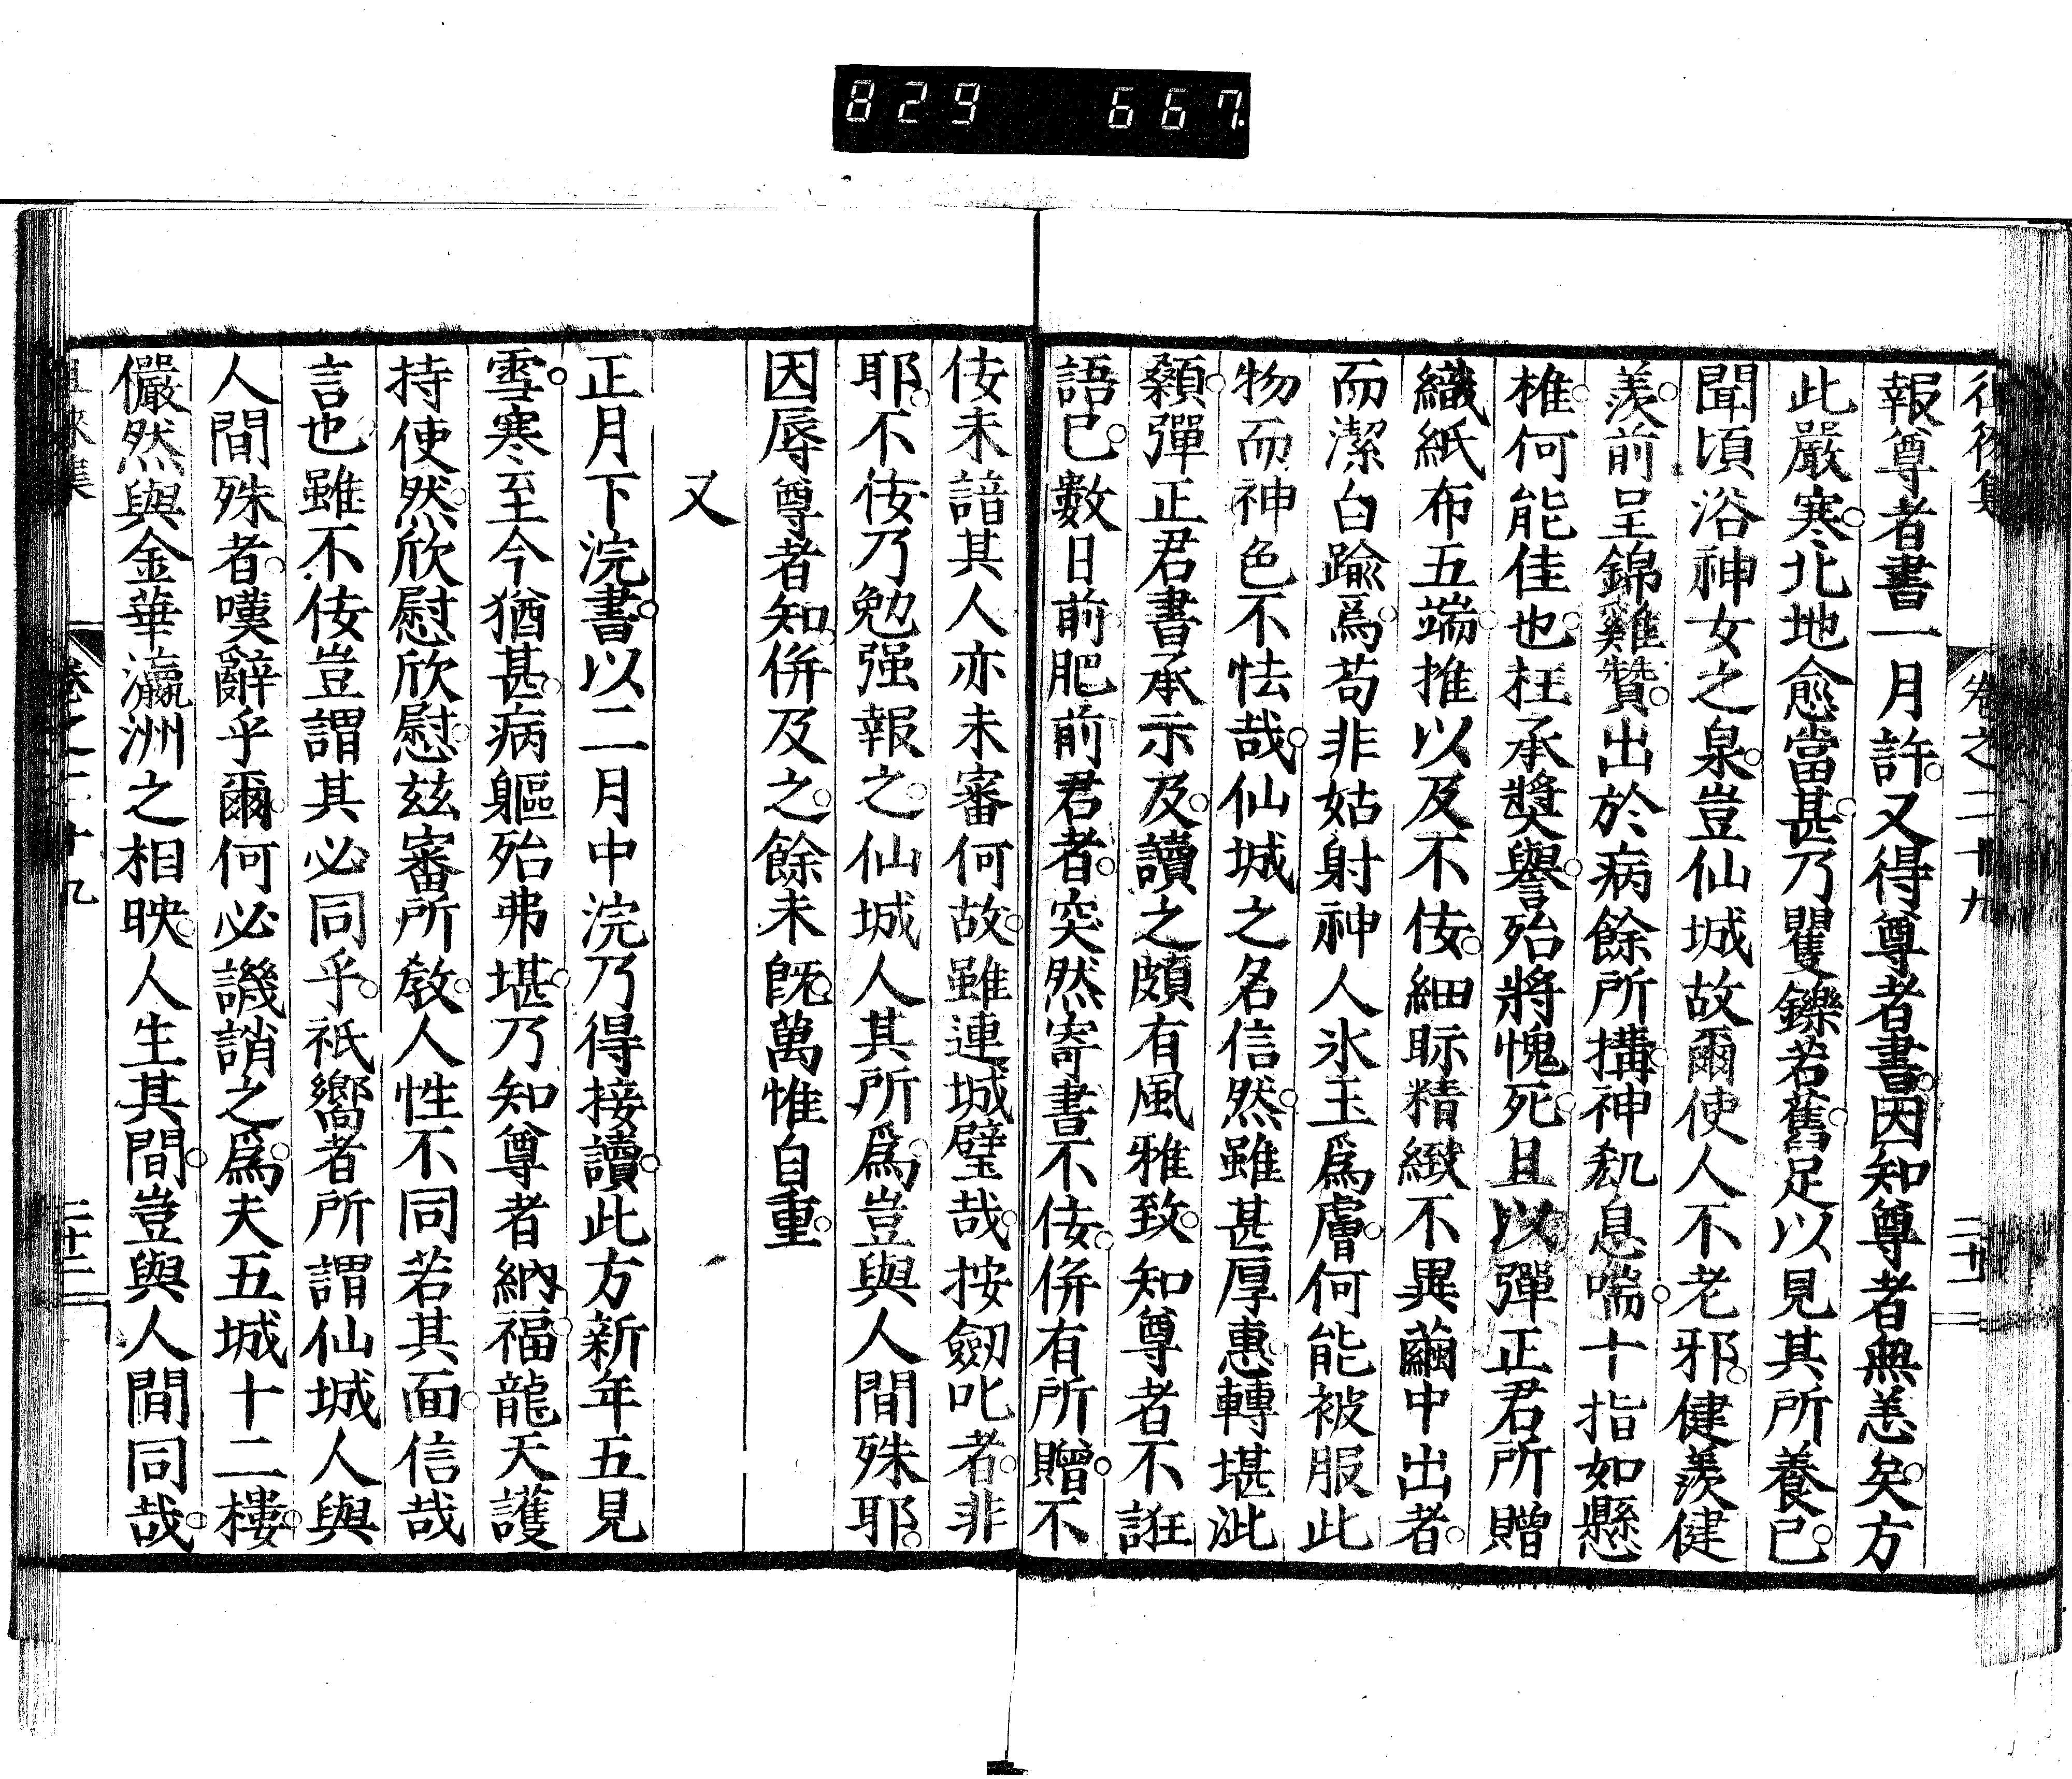 829 667
卷之二十九
二十一
報尊者書一月許又得尊者書因知尊者無恙矣方
此嚴寒北地愈當甚乃矍鑠若舊足以見其所養已
聞頃浴神女之泉豈仙城故爾使人不老邪健羨健
羨前呈錦雞贊出於病餘所搆神氣息喘十指如懸
椎何能佳也枉承奬譽殆將愧死且以彈正君所贈
織紙布五端推以及不佞細眎精緻不異繭中出者
而潔白踰焉苟非姑射神人氷玉爲膚何能被服此
物而神色不怯哉仙城之名信然雖甚厚惠轉堪泚
顙彈正君書承示及讀之頗有風雅致知尊者不誑
語已數日前肥前君者突然寄書不佞併有所贈不
佞未諳其人亦未審何故雖連城璧哉按劒叱者非
耶不佞乃勉强報之仙城人其所爲豈與人間殊耶
因辱尊者知併及之餘未旣萬惟自重
又
正月下浣書以二月中浣乃得接讀此方新年五見
雪寒至今猶甚病軀殆弗堪乃知尊者納福龍天護
持使然欣慰欣慰兹審所敎人性不同若其面信哉
言也雖不佞豈謂其必同乎祇嚮者所謂仙城人與
人間殊者嘆辭乎爾何必譏誚之爲夫五城十二樓
儼然與金華瀛洲之相映人生其間豈與人間同哉
卷之二十九
二十二